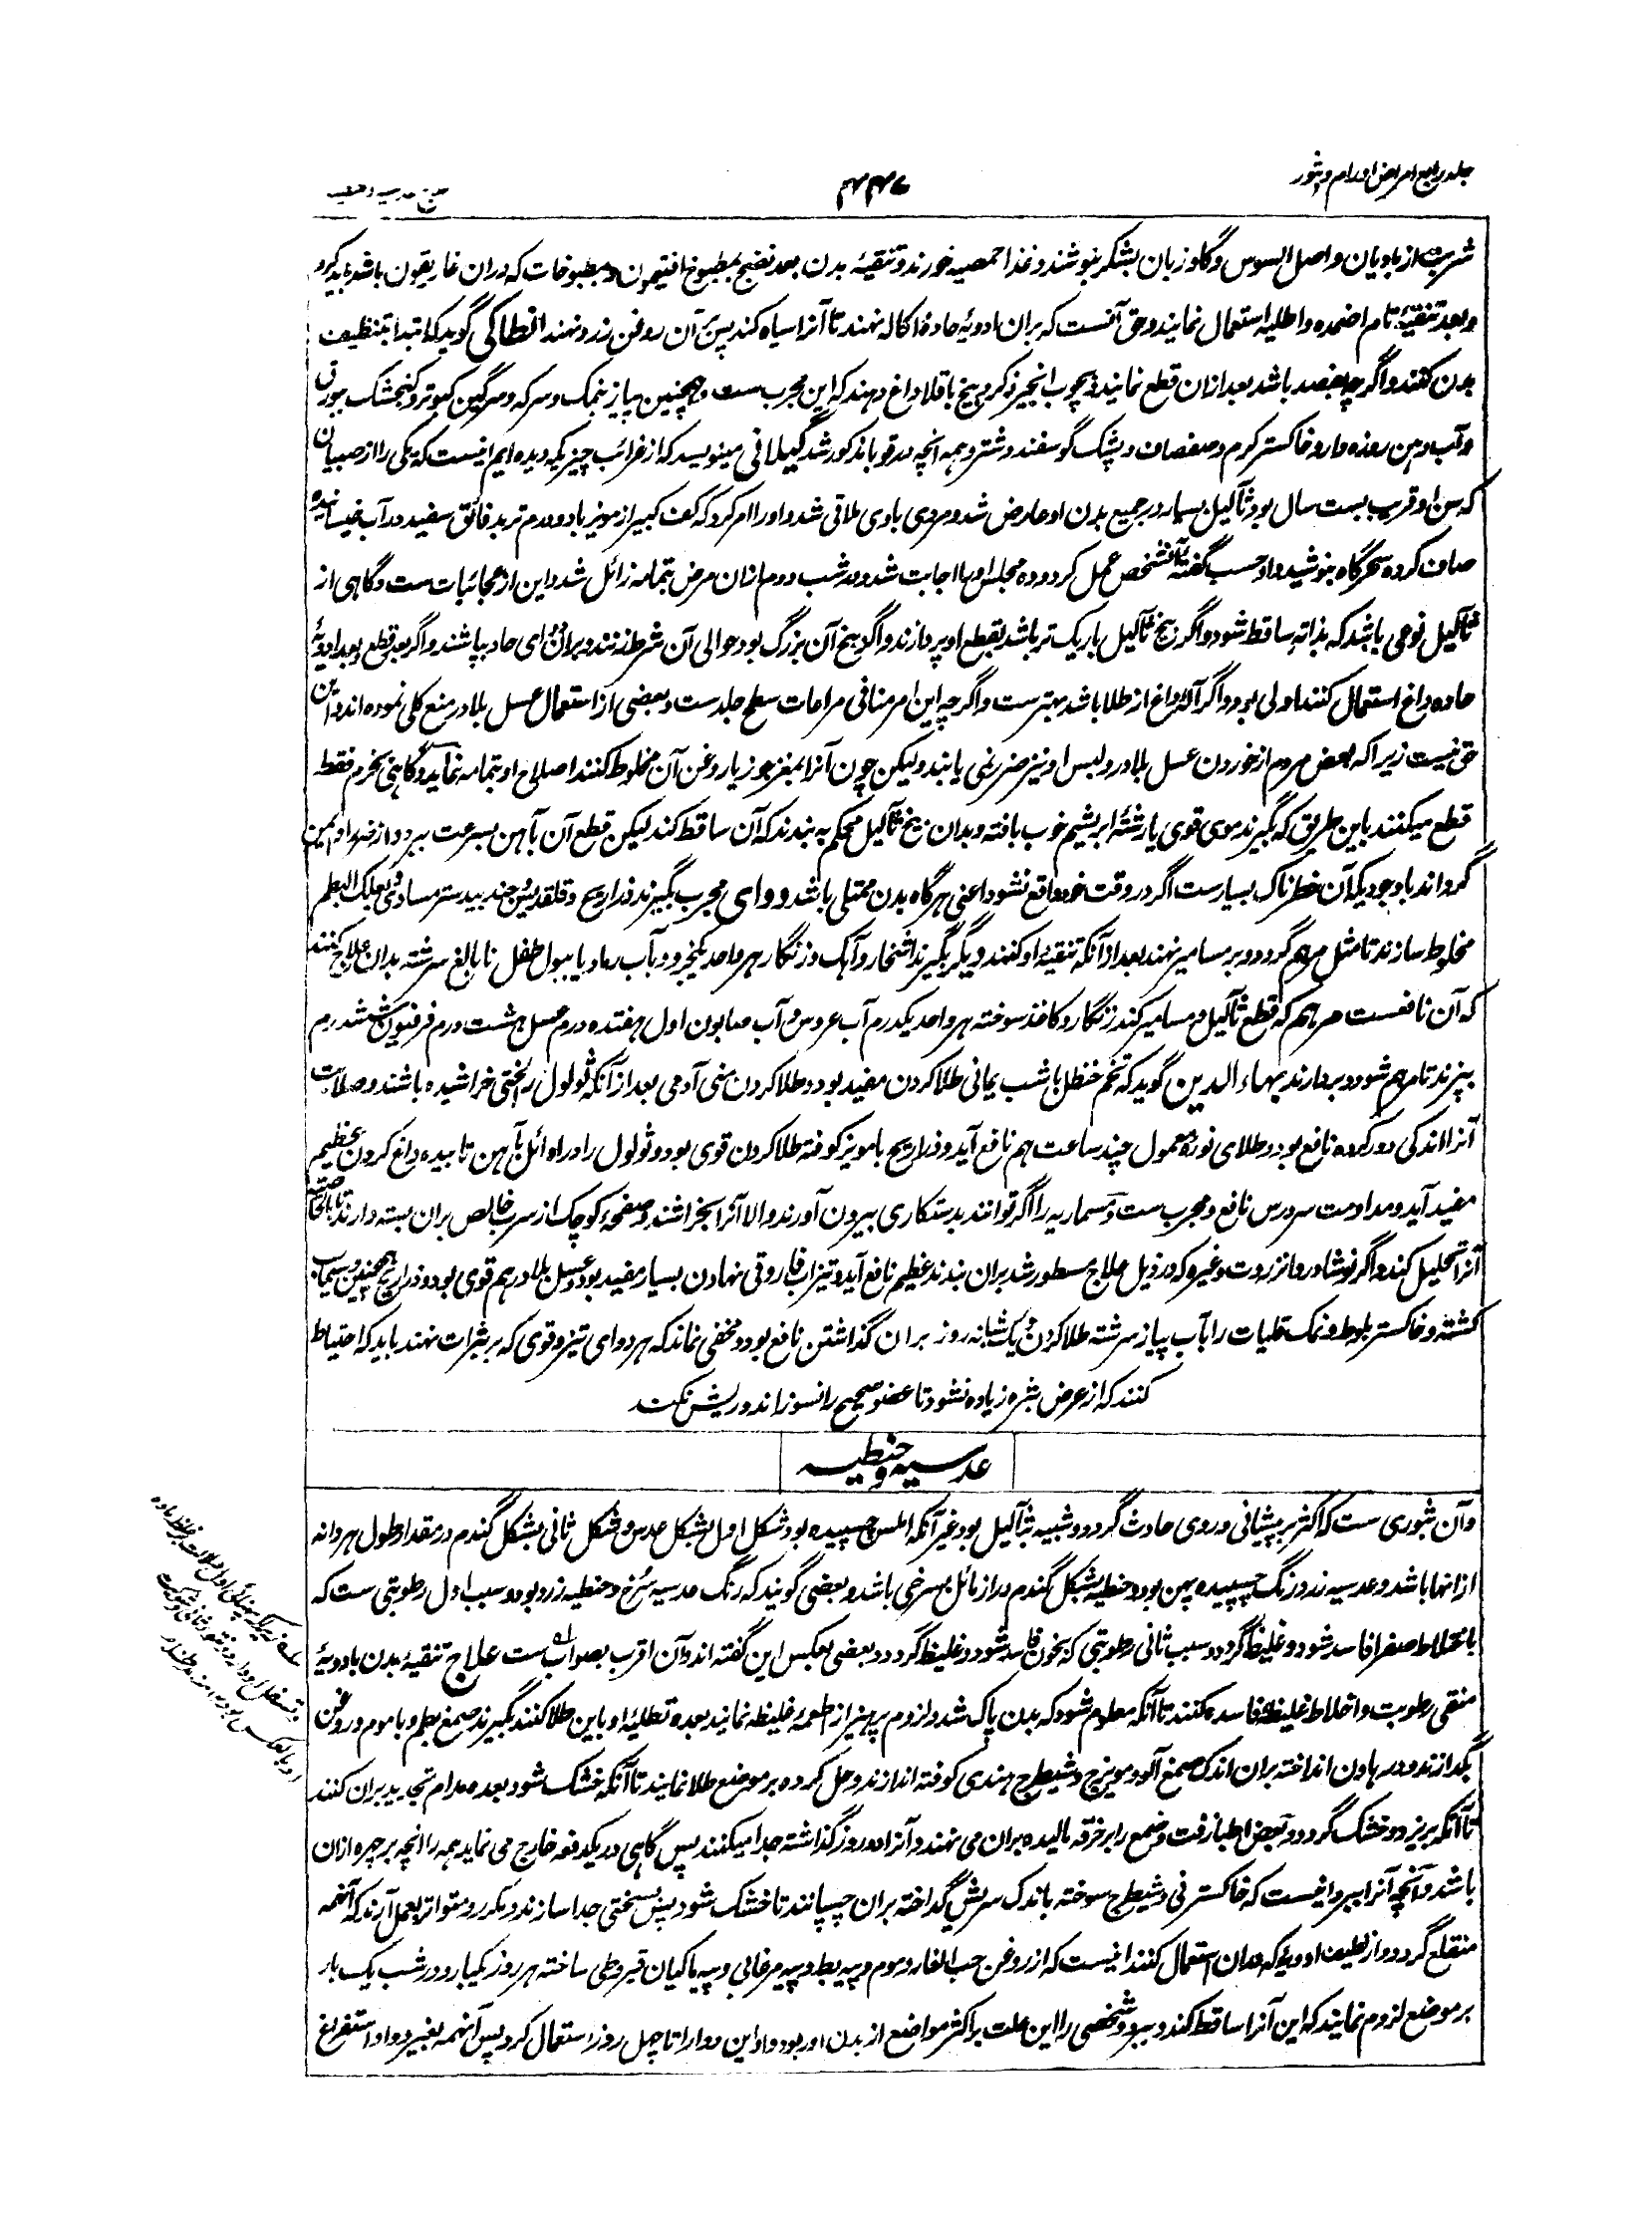 جلد رابع امراض اورام و بثور
۴۴۷
عدسیه و حنطیه
شربت از بادیان و اصل السوس و گاوزبان بشکر بنوشند و غذا حمصیه خورند و تنقیهٔ بدن بعد نضج بمطبوخ افتیمون و مطبوخات که دران غاریقون باشد باید کرد
و بعد تنقیهٔ تام اضمده و اطلیه استعمال نمایند و حق آنست که بران ادویهٔ حادهٔ اکاله نهند تا آنرا سیاه کند پس بران روغن زرد نهند انطاکی گوید که ابتدا بتنظیف
بدن کنند و اگرچه بفصد باشد بعد ازان قطع نمایند و بچوب انجیر ذکر و بیخ باقلا داغ دهند که این مجرب ست و همچنین پیاز و نمک و سرکه و سرگین کبوتر و کنجشک ببورق
و آب دهن روزه دار و خاکستر کرم و صفصاف و پشک گوسفند و شتر و همه انچه در قوبا مذکور شد گیلانی مینویسد که از غرائب چیزیکه دیده ایم اینست که یکی را از صبیان
که سن او قریب بست سال بود ثآلیل بسیار در جمیع بدن او عارض شد و مردی بادی ملاقی شد و او را امر کرد که کف کبیر از مویز با دو درم تربد فائق سفید در آب خیسانیده
صاف کرده سحرگاه بنوشید و او حسب گفتهٔ آنشخص عمل کرد و ده مجلس او را اجابت شد و در شب دوم ازان مرض بتمامه زائل شد و این از عجائبات ست و گاهی از
ثآلیل نوعی باشد که بذاته ساقط شود و اگر بیخ ثآلیل باریک تر باشد بقطع او پردازند و اگر بیخ آن بزرگ بود حوالی آن شرط زنند و بران دوای حاد بپاشند و اگر بعد قطع و بعد ادویهٔ
حاده داغ استعمال کنند اولی بود و اگر آلهٔ داغ از طلا باشد بهتر ست و اگرچه این امر منافی مراعات سطح جلد ست و بعضی از استعمال عسل بلادر منع کلی نموده اند و این
حق نیست زیرا که بعض مردم از خوردن عسل بلادر و لبس او نیز ضرر نمی یابند ولیکن چون آنرا بمغز جوز یا روغن آن مخلوط کنند اصلاح او بتمامه نماید و گاهی بخرم فقط
قطع میکنند باین طریق که بگیرند موی قوی یا رشتهٔ ابریشم خوب بافته و بدان بیخ ثآلیل محکم به بندند که آن ساقط کند لیکن قطع آن بآهن بسرعت ببرد و از ضرر او ایمن
گرداند باوجودیکه آن خطرناک بسیار ست اگر در وقت خود واقع نشود اعنی هرگاه بدن ممتلی باشد دوای مجرب بگیرند ذراریح و قلقدیس و جندبیدستر مساوی بعلک البطم
مخلوط سازند تا مثل مرهم گردد و بر مسامیر نهند بعد از آنکه تنقیهٔ او کنند دیگر بگیرند اشخار و آهک و زنگار هر واحد یکجزو و بآب رماد یا ببول طفل نابالغ سرشته بدان علاج کنند
که آن نافعست مرهم که قطع ثآلیل و مسامیر کند زنگار و کاغذ سوخته هر واحد یکدرم آب عروس و آب صابون اول هفتده درم عسل هشت درم فرفیون شش درم
بپزند تا مرهم شود و بردارند بهاء الدین گوید که تخم حنظل با شب یمانی طلا کردن مفید بود و طلا کردن منی آدمی بعد از آنکه ثولول را لختی خراشیده باشند و صلابت
آنرا اندکی دور کرده نافع بود و طلای نوره معمول چند ساعت هم نافع آید و ذراریح با مویز کوفته طلا کردن قوی بود و ثولول را در اوائل بآهن تابیده داغ کردن عظیم
مفید آید و مداومت سورس نافع و مجرب ست و مسماریه را اگر توانند بدستکاری بیرون آورند والا آنرا بخراشند و صفحهٔ کوچک از سرب خالص بران بسته دارند تا بالخاصه
آنرا تحلیل کند و اگر نوشادر و انزروت و غیره که در ذیل علاج مسطور شد بران بندند عظیم نافع آید و تیزاب فاروقی نهادن بسیار مفید بود و عسل بلادر هم قوی بود و ذراریح همچنین و سیماب
کشته و خاکستر بلوط و نمک قلیات را بآب پیاز سرشته طلا کردن و یک شبانه روز بران گذاشتن نافع بود و مخفی نماند که هر دوای تیز و قوی که بر بثرات نهند باید که احتیاط
کنند که از عرض بثره زیاده نشود تا عضو صحیح را نسوزاند و ریش نکند
عدسیه و حنطیه
و آن بثوری ست که اکثر بر پیشانی و روی حادث گردد و شبیه بثآلیل بود غیر آنکه املس چسپیده بود شکل اول بشکل عدس و شکل ثانی بشکل گندم در مقدار طول هر دانه
ازانها باشد و عدسیه زرد رنگ چسپیده پهن بود و حنطیه بشکل گندم دراز مائل بسرخی باشد و بعضی گویند که رنگ عدسیه سرخ و حنطیه زرد بود و سبب اول رطوبتی ست که
باختلاط صفرا فاسد شود و غلیظ گردد و سبب ثانی رطوبتی که بخون فاسد شود و غلیظ گردد و بعضی بعکس این گفته اند و آن اقرب بصواب ست علاج تنقیهٔ بدن بادویهٔ
منقی رطوبت و اخلاط غلیظهٔ فاسده کنند تا آنکه معلوم شود که بدن پاک شد و لزوم پرهیز از اطعمهٔ غلیظه نمایند بعده تطلیهٔ او باین طلا کنند بگیرند صمغ بطم و با موم و روغن
بگدازند و در هاون انداخته بران اندک صمغ آلو و مویزج و شیطرج هندی کوفته اندازند و حل کرده بر موضع طلا نمایند تا آنکه خشک شود بعده مدام تجدید بران کنند
تا آنکه بریزد و خشک گردد و بعض اطبا زفت و شمع را بر خرقه مالیده بران می نهند و آنرا دو روز گذاشته جدا میکنند پس گاهی در یکدفعه خارج می نماید همه را انچه بر چهره ازان
باشد و آنچه آنرا ببرد اینست که خاکستر نی و شیطرج سوخته باندک سریش گداخته بران چسپانند تا خشک شود پس بسختی جدا سازند و مکرر و متواتر بعمل آرند که آنهمه
منقلع گردد و از لطیف ادویه که بدان استعمال کنند اینست که از روغن حب الغار و موم و پیه بط و پیه مرغابی و پیه ماکیان قیروطی ساخته هر روز یکبار و در شب یک بار
بر موضع لزوم نمایند که این آنرا ساقط کند و ببرد و شخصی را این علت بر اکثر مواضع از بدن او بود و او این دوا را تا چهل روز استعمال کرد پس آنهمه بغیر دوا و استفراغ